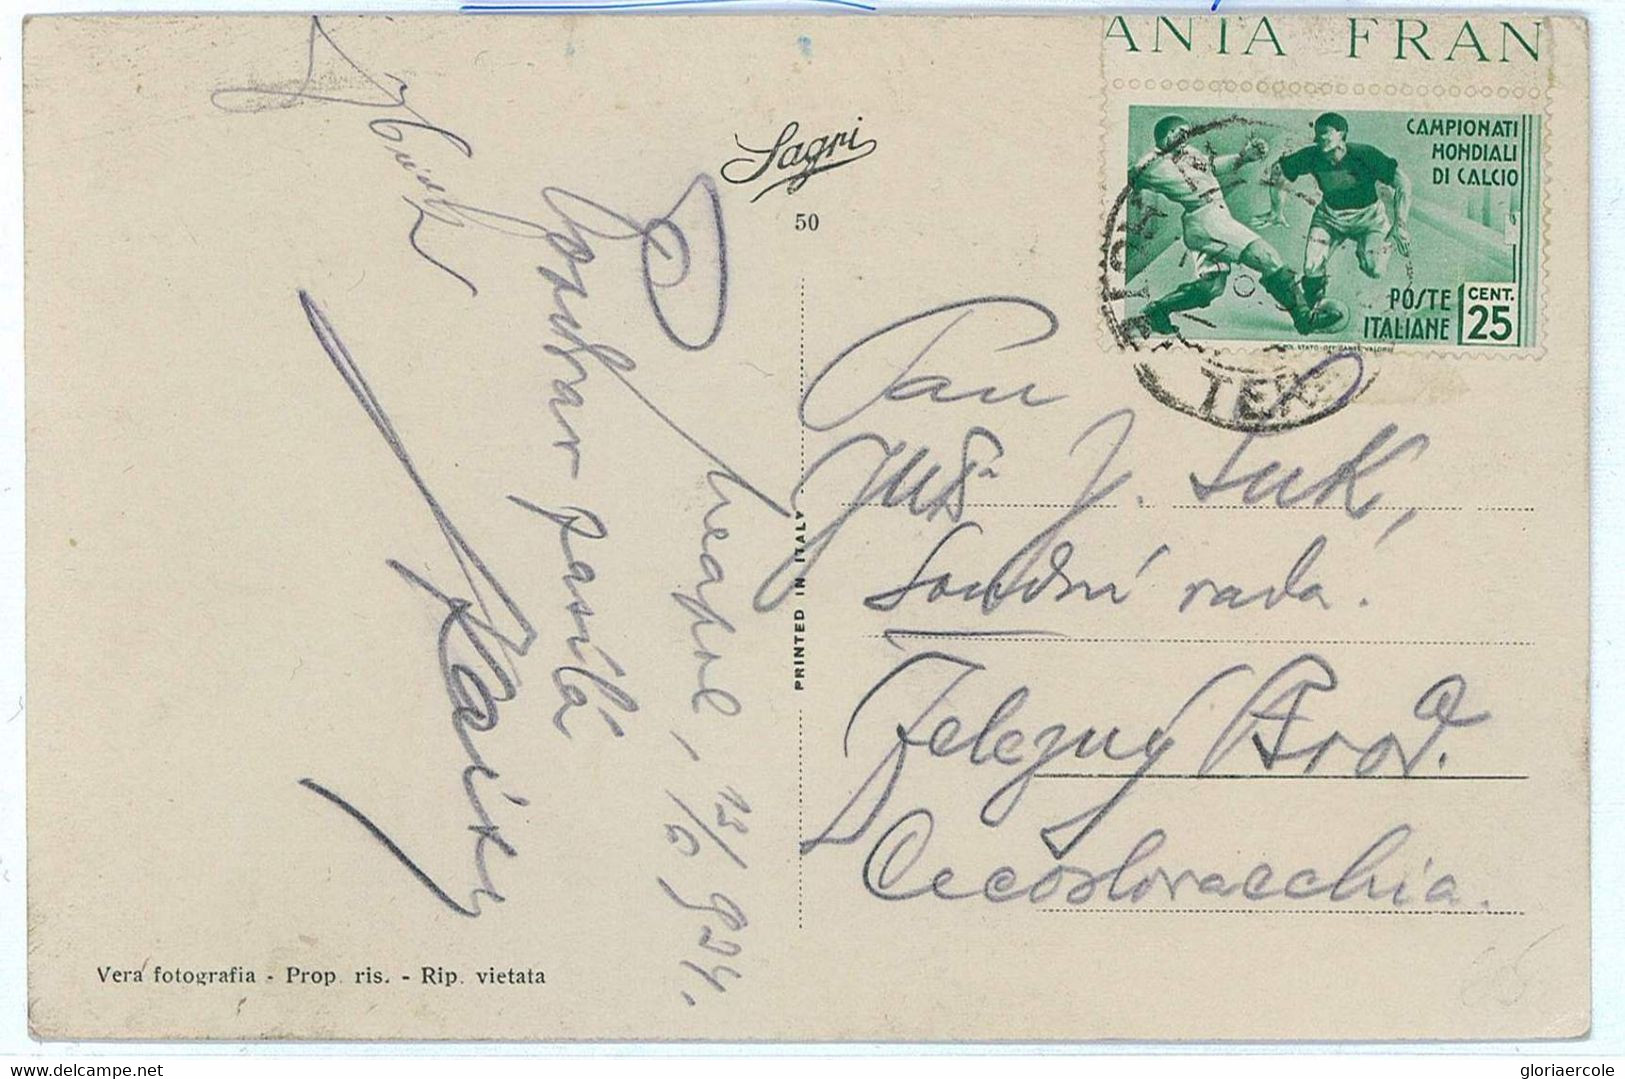 ANIA FRAN
CAMPIONATI
MONDIALI
DI CALCIO
POSTE
ITALIANE
CENT.
25
TER
Sagri
50
PRINTED IN ITALY
Neapol, 13/6 934.
Pozdrav posílá
Pan
J. Suk,
Soudní rada.
Železný Brod.
Cecoslovacchia.
Vera fotografia - Prop. ris. - Rip. vietata
gloriaercole